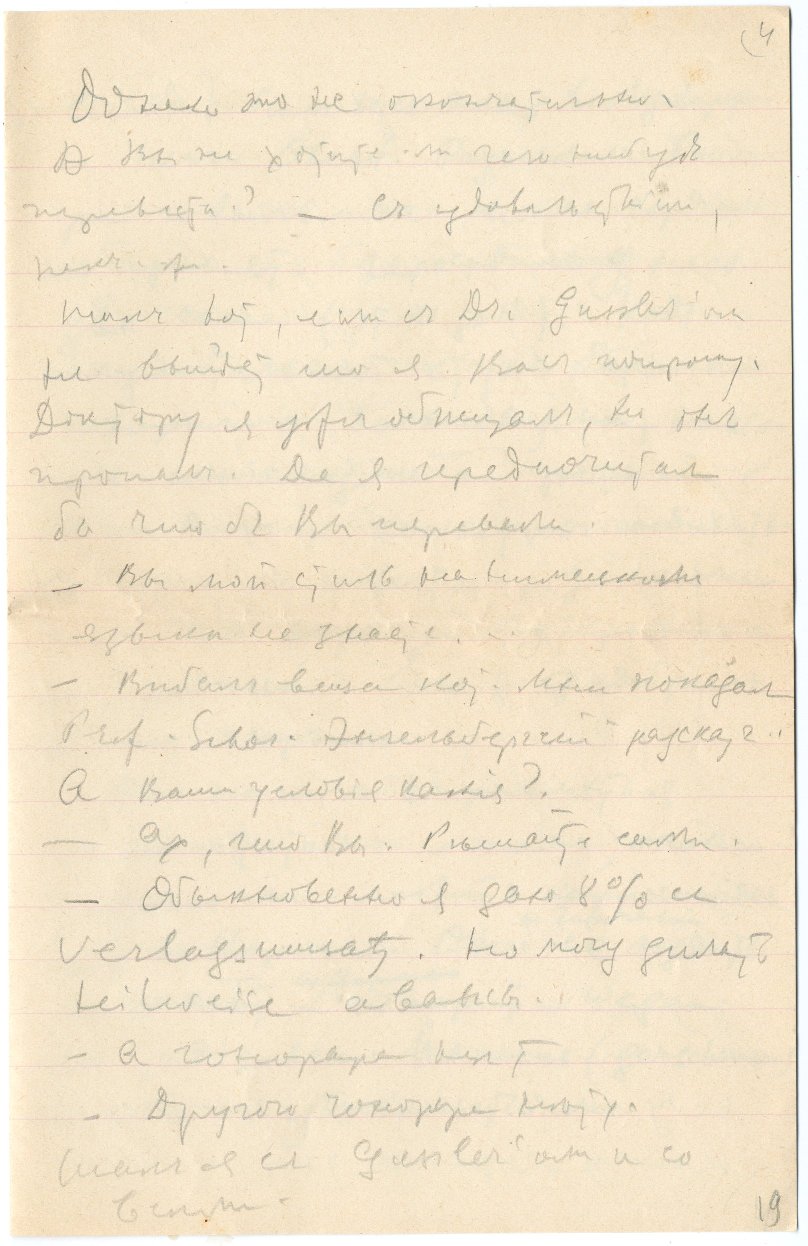 4
Однако это не окончательно.
А Вы не хотите ли чего нибудь
перевести? — Съ удовольствіем,
Такъ вот, если съ Dr. Gussler'ом
не выйдет то я Васъ попрошу.
Доктору я уже обѣщалъ, но онъ
пропалъ. Да я предпочитал
бы что бъ Вы перевели.
— Вы мой стиль на нѣмецком
языкѣ не знаете...
— Видалъ ваша Мнѣ показал
Prof. Энгельбергскій разсказ..
А Ваши условія какія?.
— Ах, что Вы. Рѣшайте сами.
— Обыкновенно я даю 8% съ
Verlagsumsatz. Но могу дѣлать
teilweise авансы..
— А гонорара нѣт
— Другого гонорара нѣту.
Такъ я съ Gussler'ом и со
19